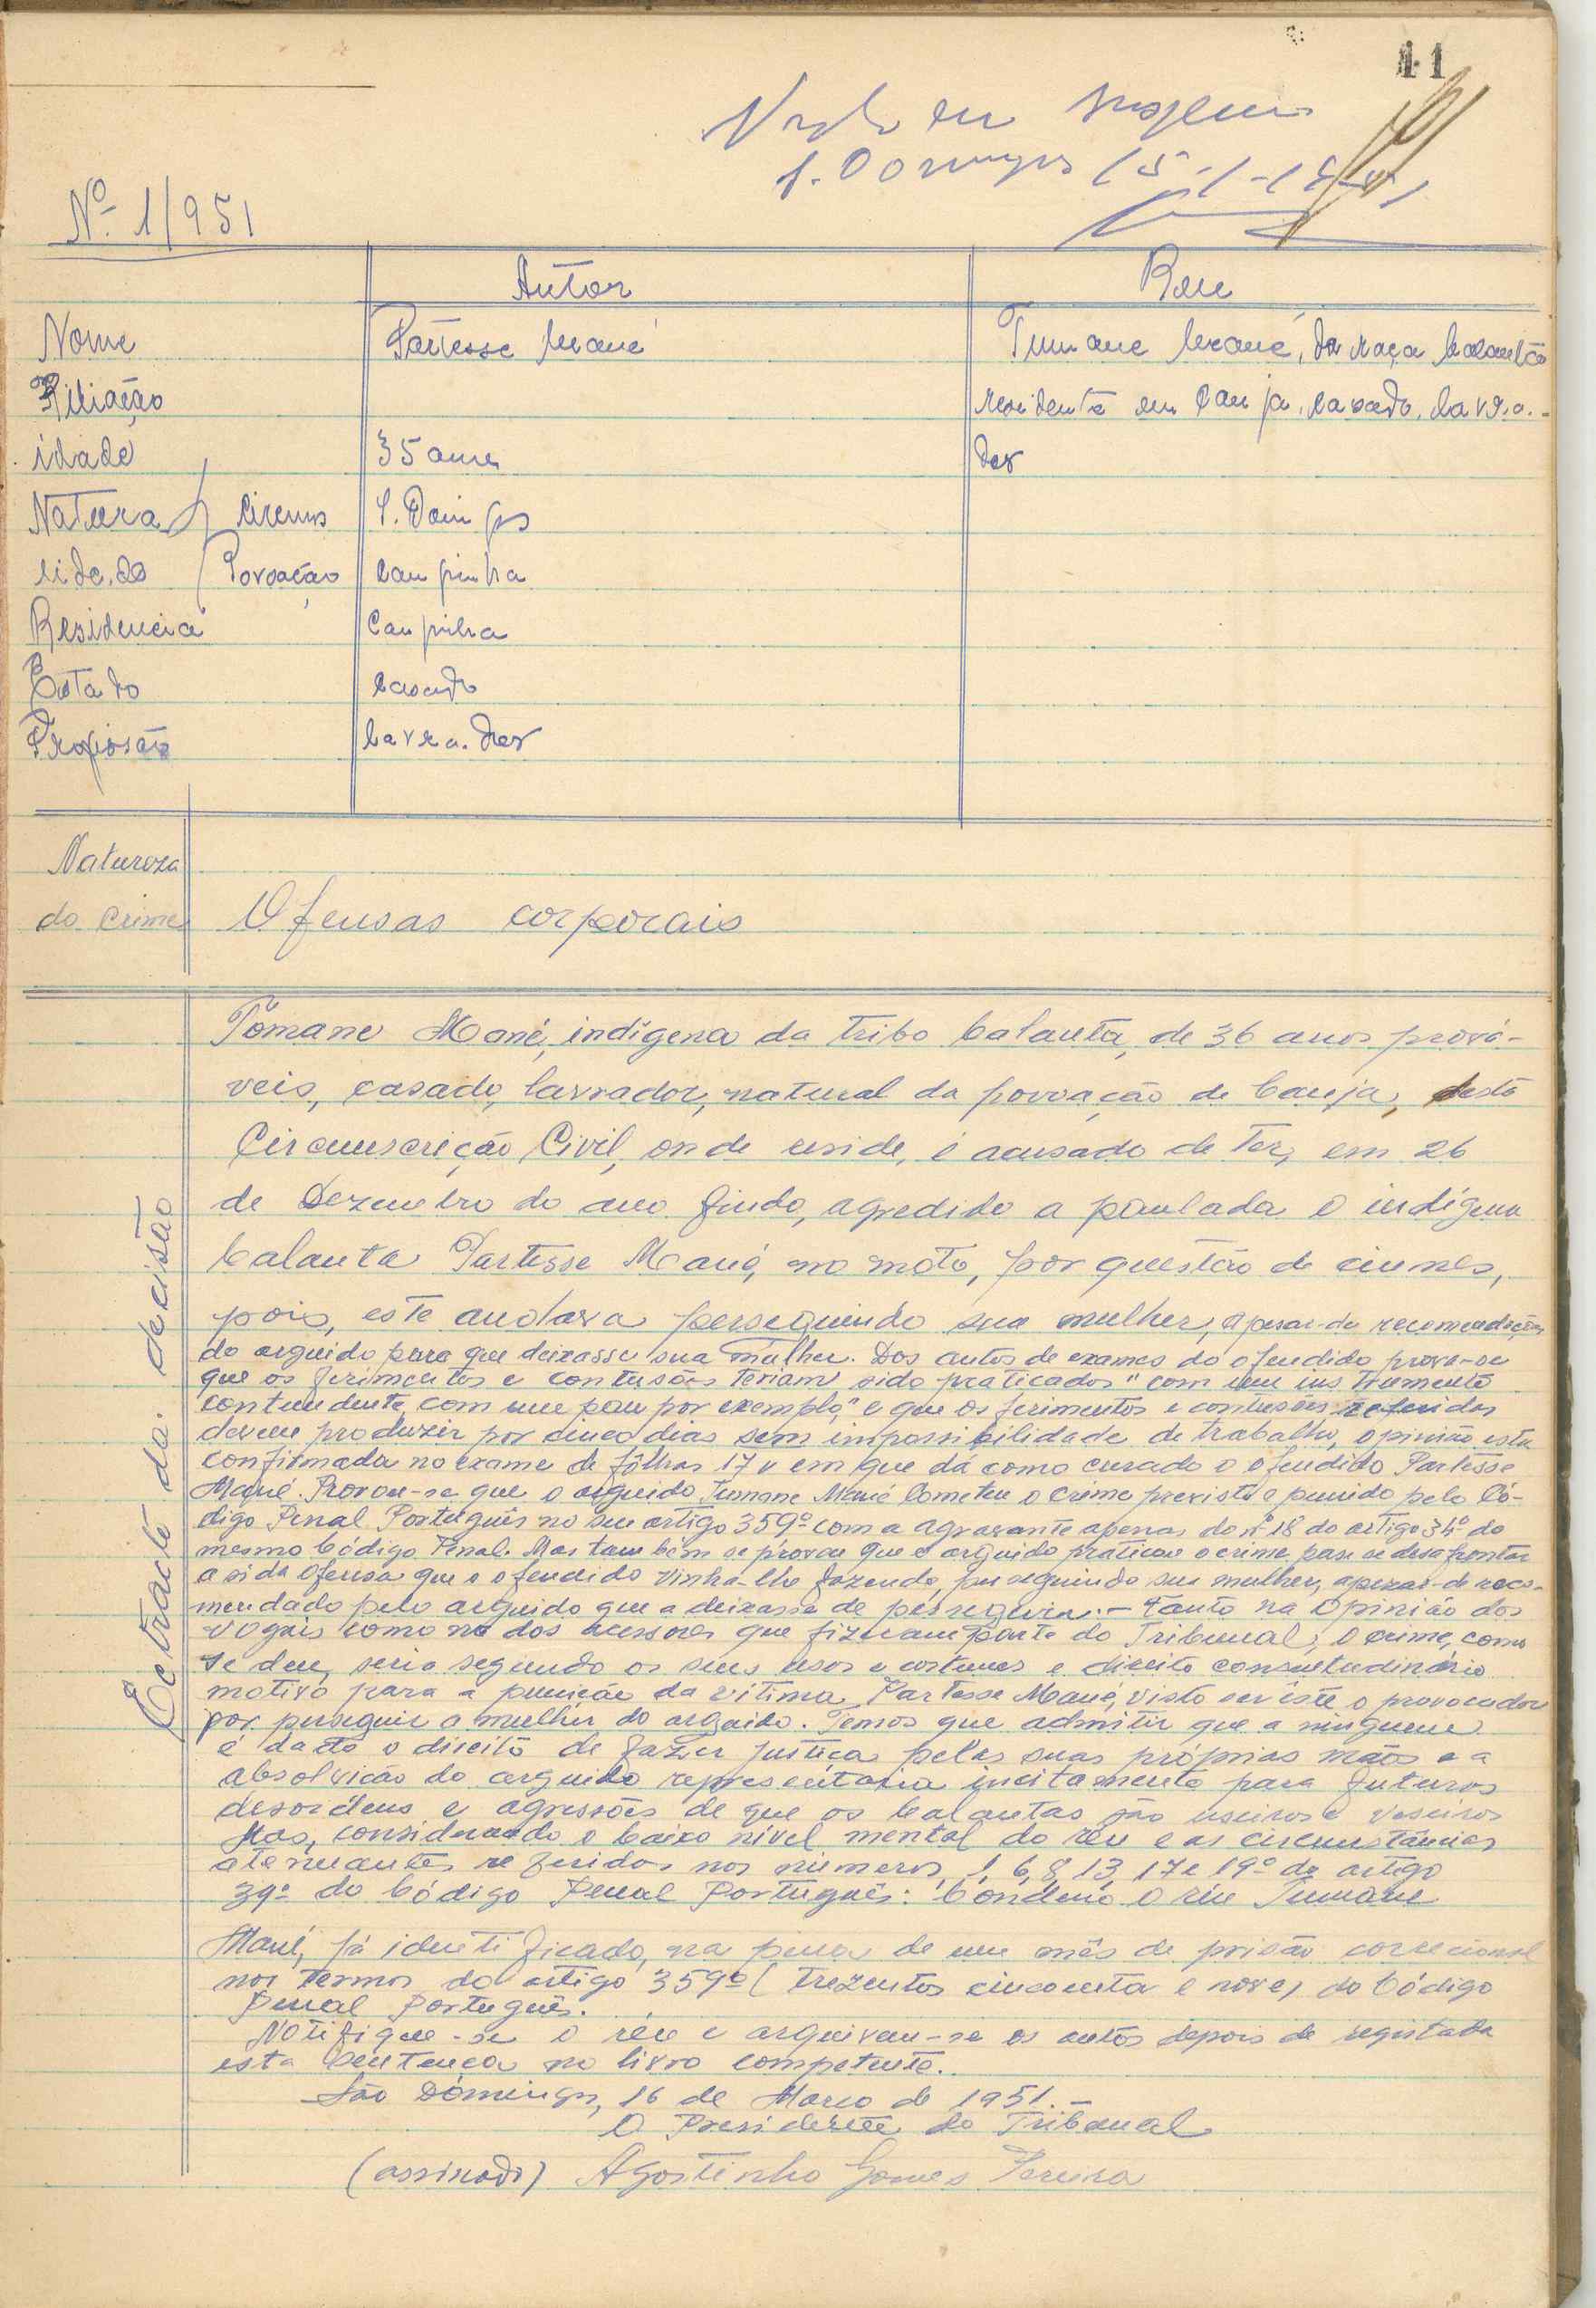 11
Visto em
S. Domingos 15-1-1951
Nº 1/951
Autor Reu
Nome Partesse Mané Tumane Mané, da raça balanta
Filiação residente em Canja, casado, lavra-
idade 35 anos dor
Natura Circuns S. Domgos
lidade Povoação Campinha
Residencia Campinha
Estado casado
Profissão lavrador
Natureza
do Crime Ofensas corporais
Extracto da decisão
Tomane Mané, indígena da tribo balanta, de 36 anos prová-
veis, casado, lavrador, natural da povoação de Canja, desta
Circunscrição Civil, onde reside, é acusado de ter, em 26
de Dezembro do ano findo, agredido a paulada o indígena
balanta Partesse Mané, no mato, por questão de ciumes,
pois, este andava perseguindo sua mulher, apesar-de recomendações
do arguido para que deixasse sua mulher. Dos autos de exames do ofendido prova-se
que os ferimentos e contusões teriam sido praticados "com um instrumento
contundente, com um pau por exemplo," e que os ferimentos e contusões referidos
devem produzir por cinco dias sem impossibilidade de trabalho, opinião esta
confirmada no exame de fôlhas 17 v em que dá como curado o ofendido Partesse
Mané. Provou-se que o arguido Tumane Mané cometeu o crime previsto e punido pelo Có-
digo Penal Português no seu artigo 359º com a agravante apenas do nº 18 do artigo 34º do
mesmo Código Penal. Mas tambêm se provou que o arguido praticou o crime para se desafrontar
a si da ofensa que o ofendido vinha-lhe fazendo, perseguindo sua mulher, apezar-de reco-
mendado pelo arguido que a deixasse de perseguir.- Tanto na opinião dos
vogais como na dos acessores que fizeram parte do Tribunal, o crime, como
se deu, seria segundo os seus usos e costumes e direito consuetudinário
motivo para a punição da vítima Partesse Mané, visto ser êste o provocador
por perseguir a mulher do arguido. Temos que admitir que a ninguem
é dado o direito de fazer justiça pelas suas próprias mãos e a
absolvição do arguido representaria incitamento para futuros
desordens e agressões de que os balantas são useiros e veseiros
Mas, considerando o baixo nível mental do réu e as circunstâncias
atenuantes referidas nos números 1, 6, 8, 13, 17 e 19º do artigo
39º do Código Penal Português: Condeno o réu Tumane
Mané, já identificado, na pena de um mês de prisão correcional
nos termos do artigo 359º (trezentos cincoenta e nove) do Código
Penal Português.
Notifique-se o réu e arquivem-se os autos depois de registada
esta sentença no livro competente.
São Domingos, 16 de Março de 1951.-
O Presidente do Tribunal
(assinado) Agostinho Gomes Pereira